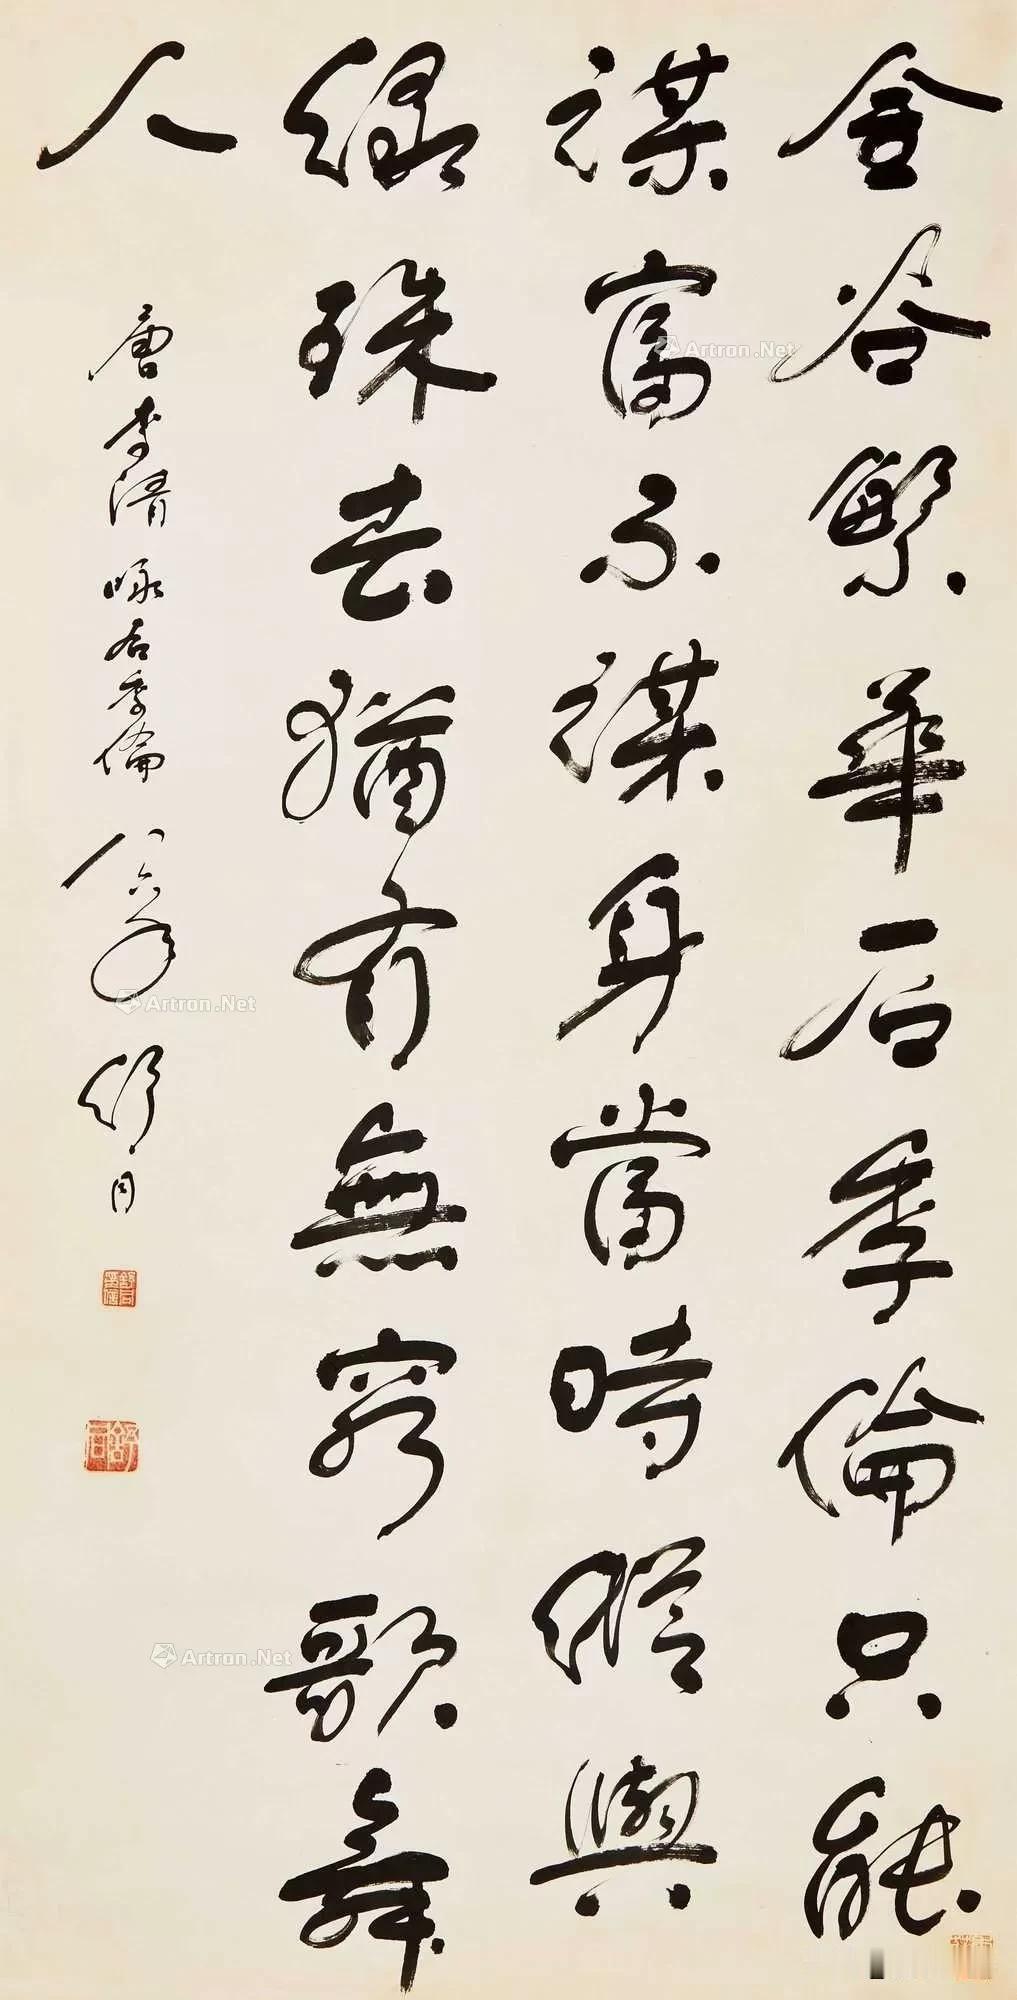 金谷繁華石季倫只能
謀富不謀身當時縱與
綠珠去猶有無窮歌舞
人
唐李清詠石季倫 八六年 舒同
舒同
Artron.Net
Artron.Net
Artron.Net